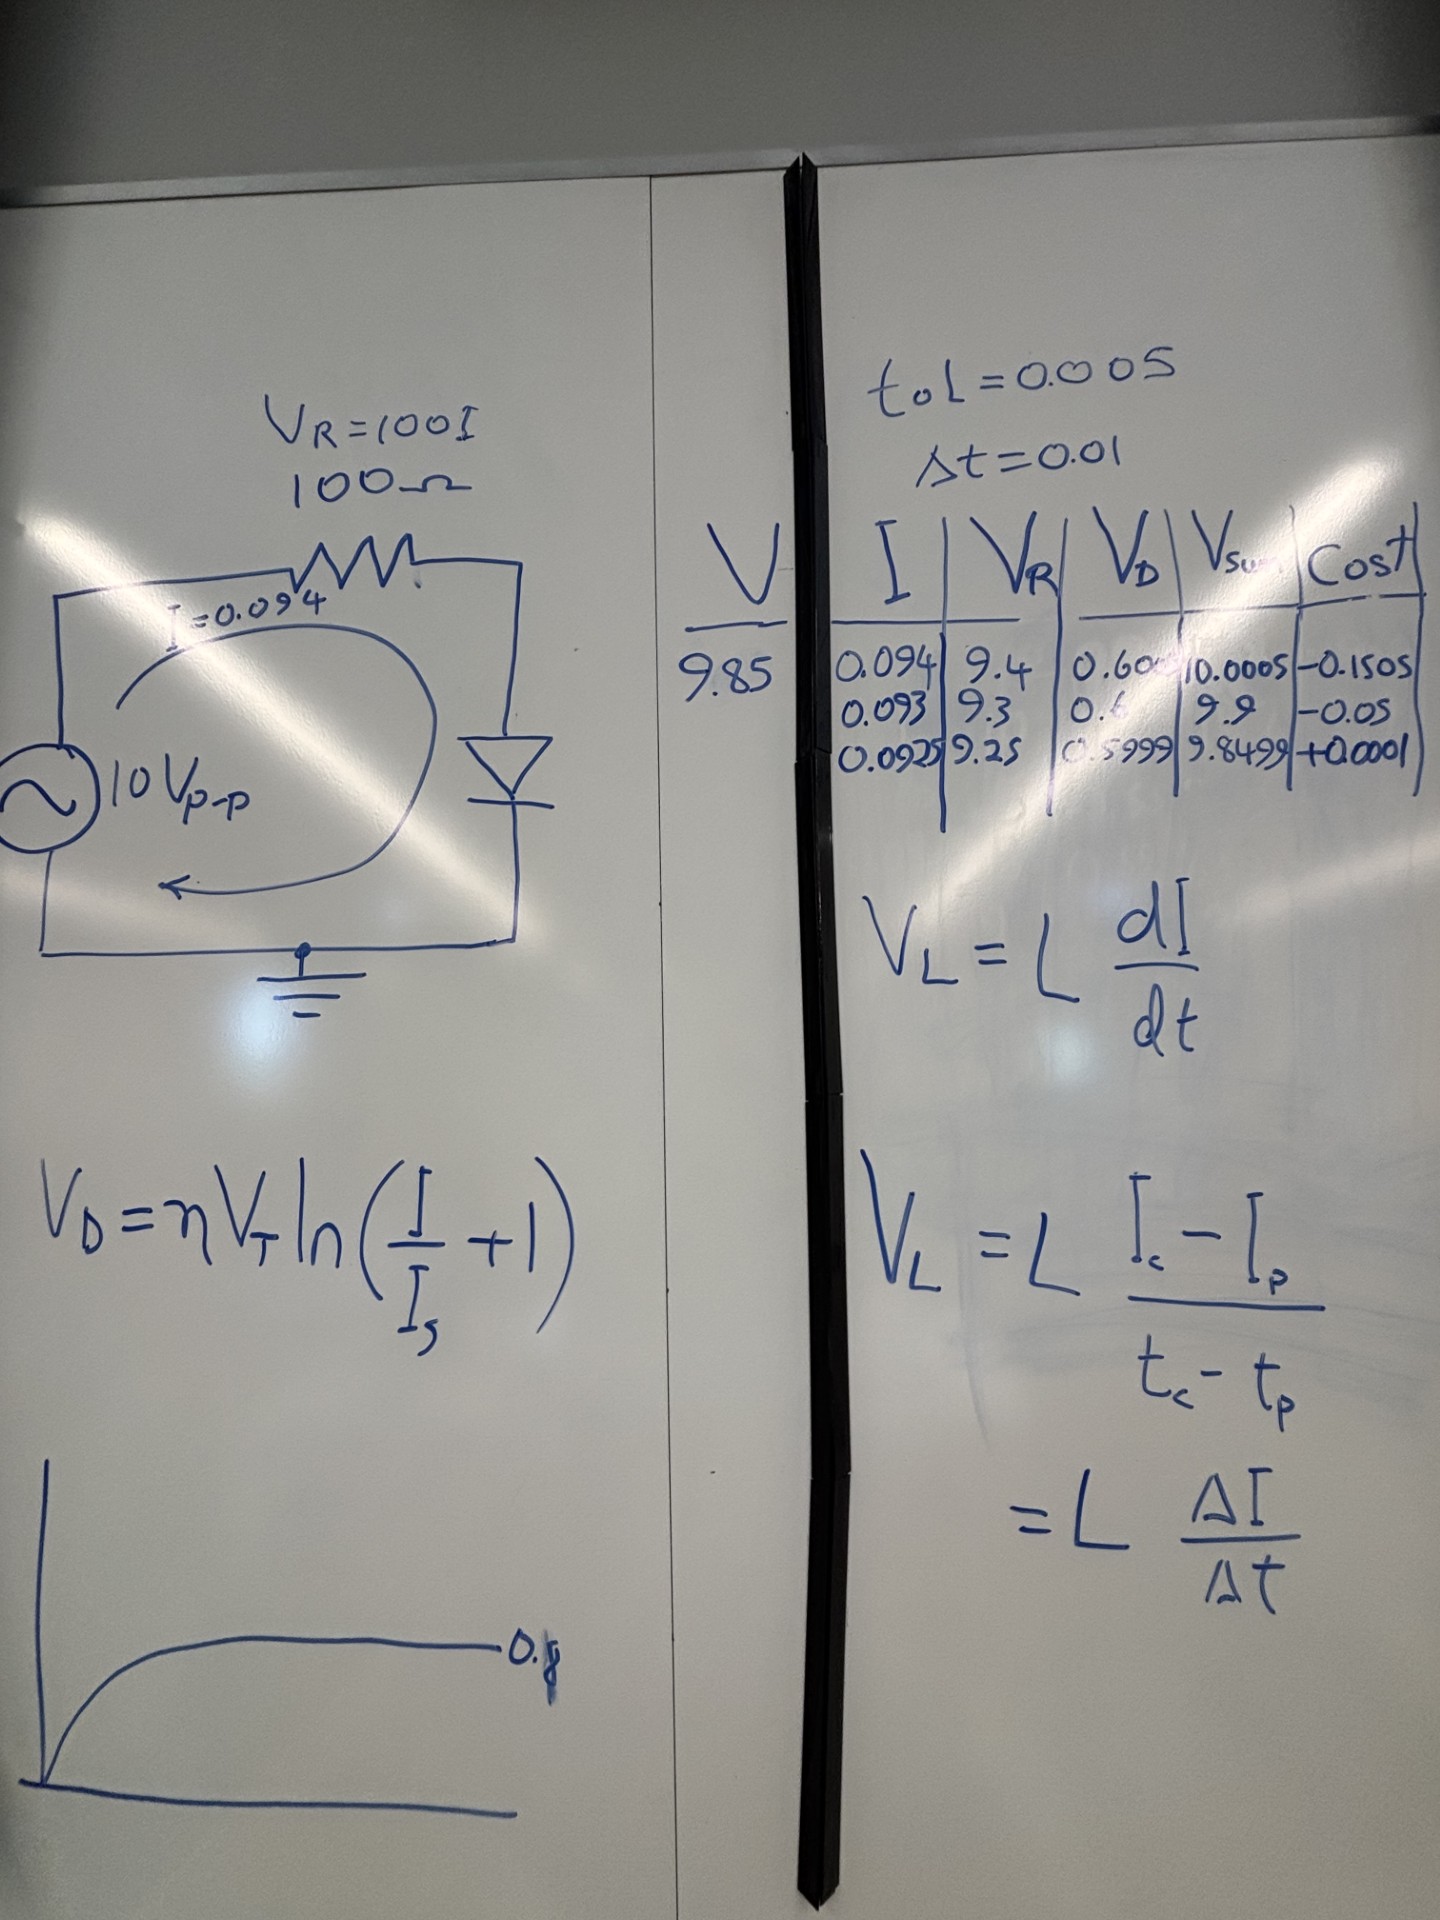 V_R=100I
100Ω
I=0.094
10 V_p-p
V_D = ηV_T ln(I/I_s + 1)
tol=0.005
Δt=0.01
V | I | V_R | V_D | V_Sum | Cost
9.85 | 0.094 | 9.4 | 0.60 | 10.0005 | -0.1505
0.093 | 9.3 | 0.6 | 9.9 | -0.05
0.0925 | 9.25 | 0.5999 | 9.8499 | +0.0001
V_L = L dI/dt
V_L = L (I_c - I_p)/(t_c - t_p)
= L ΔI/Δt